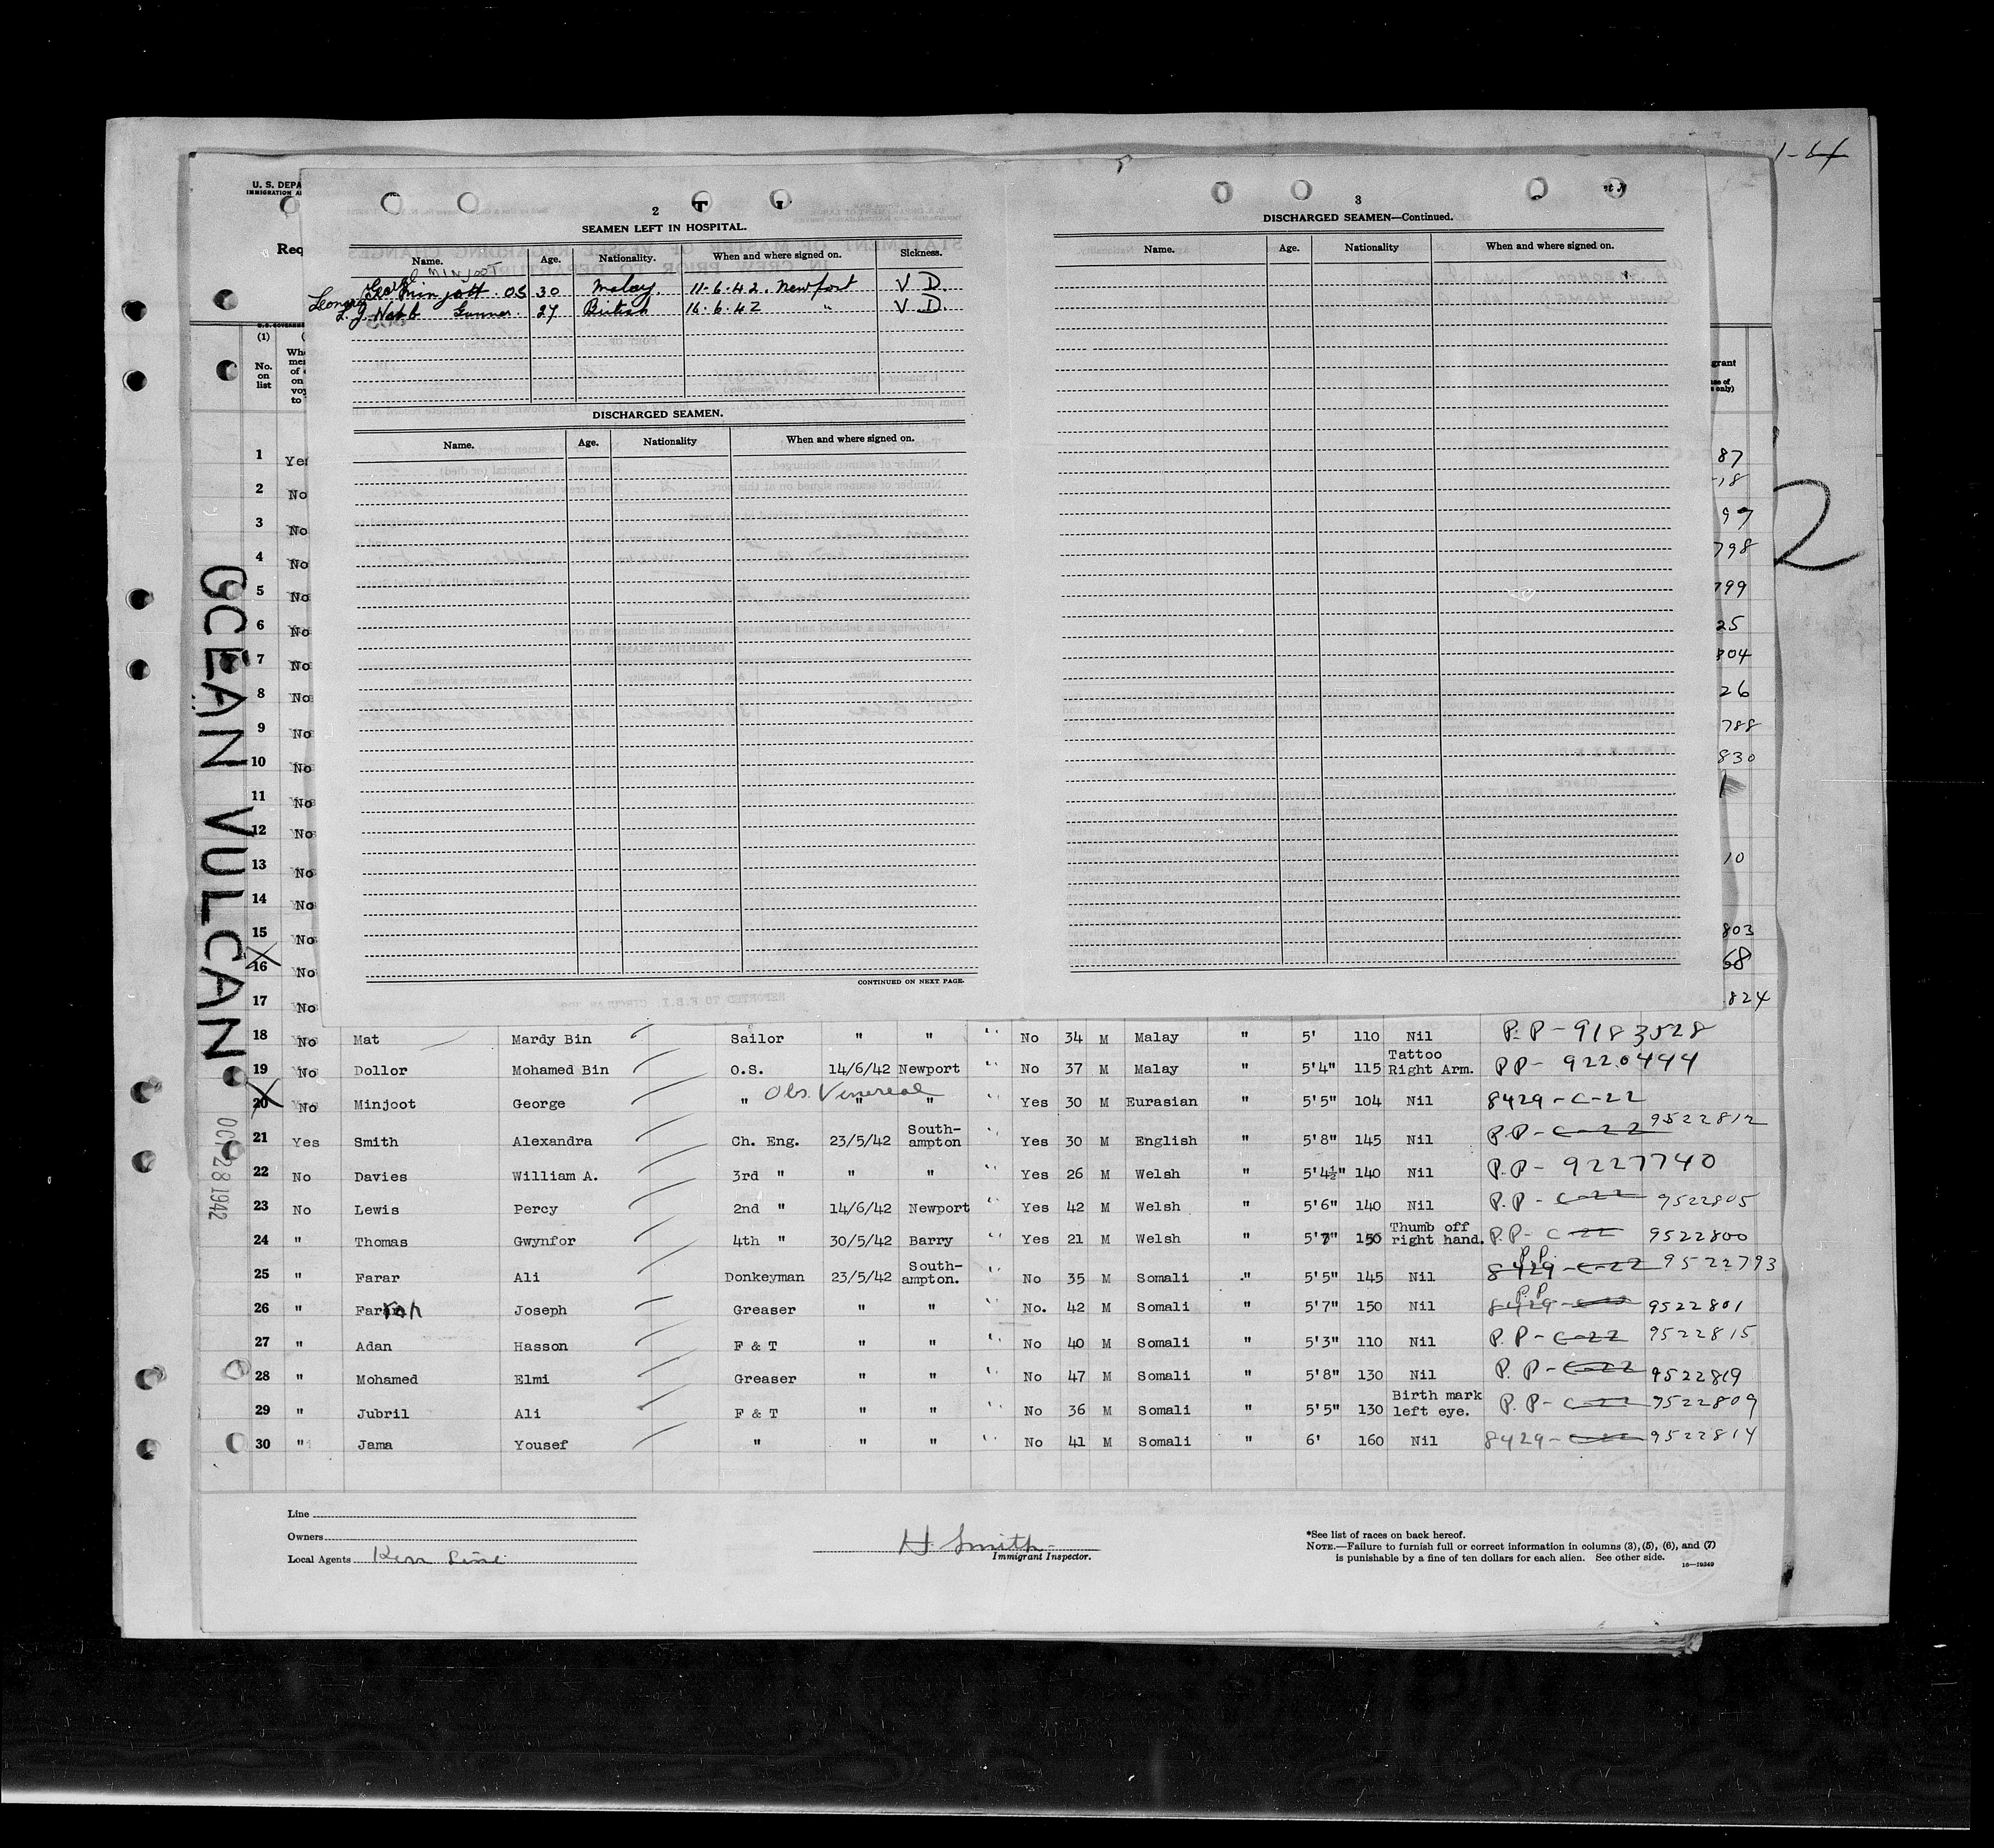 1-64
U. S. DEPA
IMMIGRATION A
Req
2
SEAMEN LEFT IN HOSPITAL.
Name. Age. Nationality. When and where signed on. Sickness.
George MINJOOT
Geo Minjott OS 30 Malay. 11-6-42. Newport V D.
Leonard
L. J Nabb Gunner. 27 British 16.6.42 " V D.
DISCHARGED SEAMEN.
Name. Age. Nationality When and where signed on.
CONTINUED ON NEXT PAGE.
3
DISCHARGED SEAMEN—Continued.
Name. Age. Nationality When and where signed on.
OCEAN VULCAN
OCT 28 1942
2
(1)
No. on list
1 Yes 87
2 No 18
3 No 97
4 No 798
5 No 799
6 No 25
7 No 804
8 No 26
9 No 788
10 No 830
11 No
12 No
13 No 10
14 No
15 No 803
16 No 68
17 No 824
18 No Mat Mardy Bin Sailor " " " No 34 M Malay " 5' 110 Nil P.P-9183528
19 No Dollor Mohamed Bin O.S. 14/6/42 Newport " No 37 M Malay " 5'4" 115 Tattoo Right Arm. PP- 9220494
Obs. Venereal
20 No Minjoot George " " " " Yes 30 M Eurasian " 5'5" 104 Nil 8429-C-22
21 Yes Smith Alexandra Ch. Eng. 23/5/42 South-ampton " Yes 30 M English " 5'8" 145 Nil P.P- C-22 9522812
22 No Davies William A. 3rd " " " " Yes 26 M Welsh " 5'4½" 140 Nil P.P- 9227740
23 No Lewis Percy 2nd " 14/6/42 Newport " Yes 42 M Welsh " 5'6" 140 Nil P.P- C-22 9522805
24 " Thomas Gwynfor 4th " 30/5/42 Barry " Yes 21 M Welsh " 5'7" 150 Thumb off right hand. P.P- C-22 9522800
25 " Farar Ali Donkeyman 23/5/42 South-ampton. " No 35 M Somali " 5'5" 145 Nil P.P. 8429-C-22 9522793
26 " Farah Joseph Greaser " " " No. 42 M Somali " 5'7" 150 Nil P.P. 8429-C-22 9522801
27 " Adan Hasson F & T " " " No 40 M Somali " 5'3" 110 Nil P.P-C-22 9522815
28 " Mohamed Elmi Greaser " " " No 47 M Somali " 5'8" 130 Nil P.P-C-22 9522819
29 " Jubril Ali F & T " " " No 36 M Somali " 5'5" 130 Birth mark left eye. P.P- C-22 9522809
30 " Jama Yousef " " " " No 41 M Somali " 6' 160 Nil 8429-C-22 9522814
Line
Owners
Local Agents Kerr Line
H Smith
Immigrant Inspector.
*See list of races on back hereof.
NOTE.—Failure to furnish full or correct information in columns (3), (5), (6), and (7)
is punishable by a fine of ten dollars for each alien. See other side.
16—19349